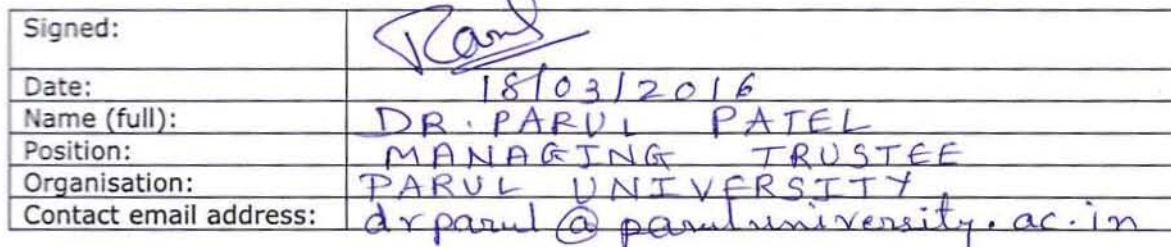 Signed: Parul
Date: 18/03/2016
Name (full): DR. PARUL PATEL
Position: MANAGING TRUSTEE
Organisation: PARUL UNIVERSITY
Contact email address: drparul@paruluniversity.ac.in